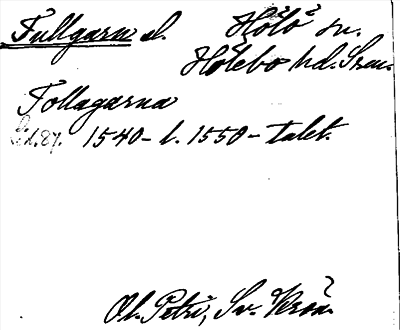 Tullgarn sl. Hölö sn.
Hölebo hd. Srm.
Tollagarna
s. 27. 1540- l. 1550-talet.
Ol. Petri, Sv. Krön.